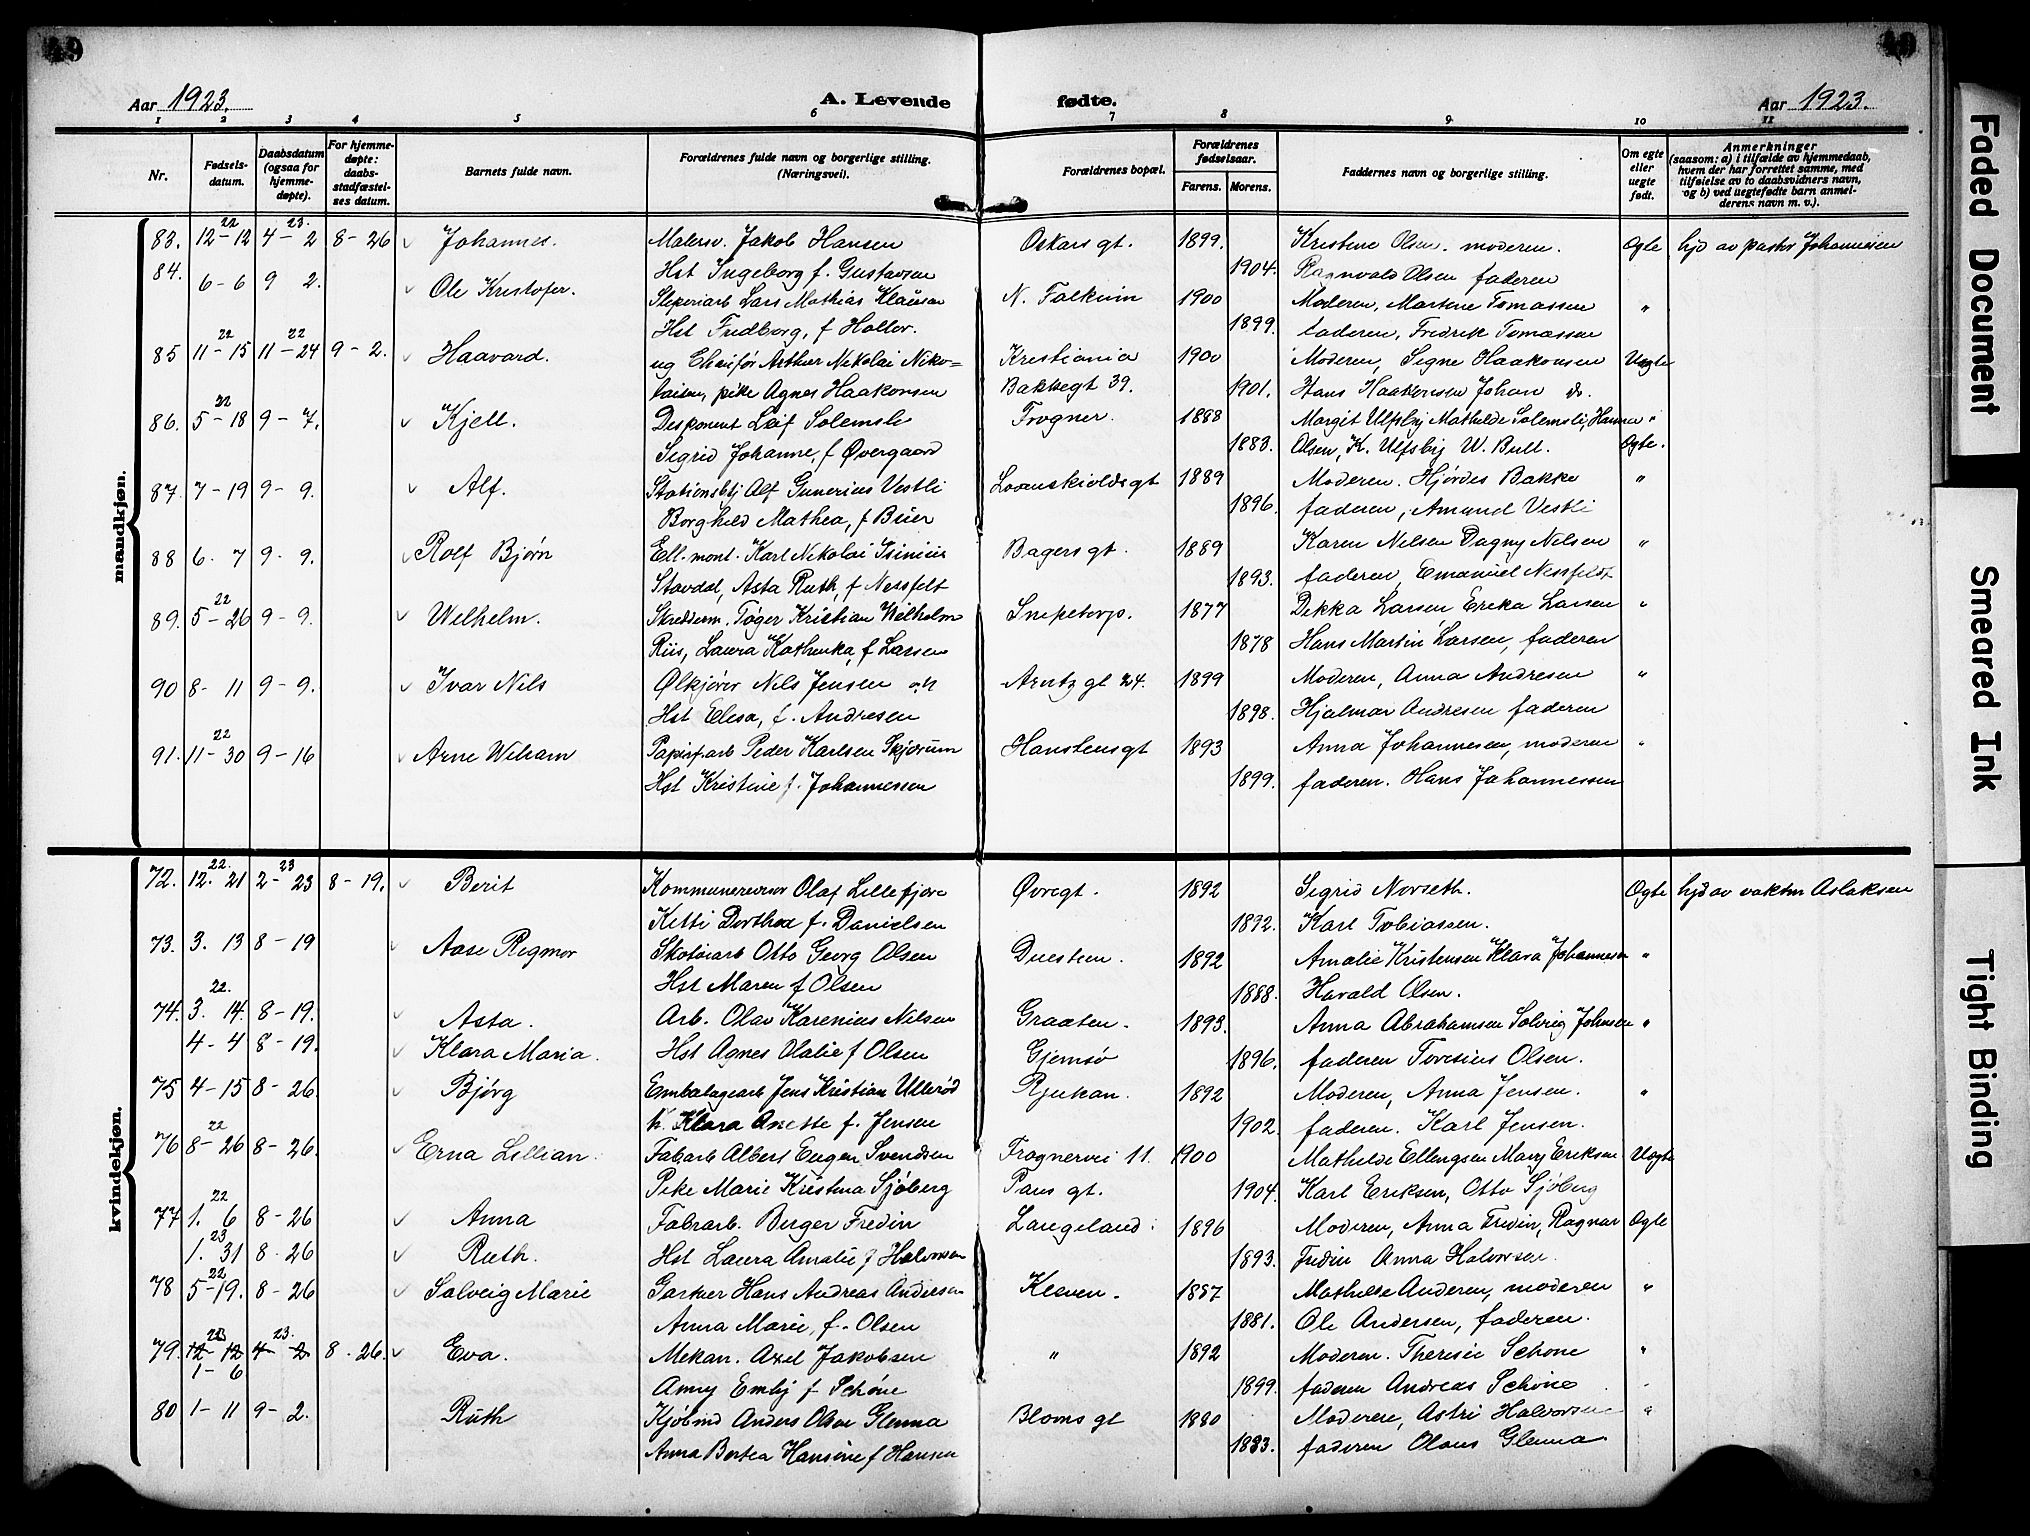 49
49
Aar 1923.
A. Levende fødte.
Aar 1923.
1 2 3 4 5 6 7 8 9 10 11
Nr.
Fødselsdatum.
Daabsdatum (ogsaa for hjemmedøpte).
For hjemmedøpte: daabsstadfæstelses datum.
Barnets fulde navn.
Forældrenes fulde navn og borgerlige stilling. (Næringsvei).
Forældrenes bopæl.
Forældrenes fødselsaar.
Farens. Morens.
Faddernes navn og borgerlige stilling.
Om egte eller uegte født.
Anmerkninger (saasom: a) i tilfælde av hjemmedaab, hvem der har forrettet samme, med tilføielse av to daabsvidners navn, og b) ved uegtefødte barn anmelderens navn m. v.).
mandkjøn.
83. 12-12 22 4-2 23 8-26 Johannes. Malersv. Jakob Hansen Oskars gt. 1899. Kristine Olsen. moderen. Ogte hjd av pastor Johannesen
Hst Ingeborg f. Gustavsen 1904. Ragnvald Olsen faderen
84. 6-6 9 2. Ole Kristofer. Sliperiarb Lars Mathias Klausen N. Falkum 1900 Moderen, Martine Tomassen "
Hst Fredborg, f Holler. 1899. faderen, Fredrik Tomassen
85 11-15 22 11-24 22 9-2. Haavard. ug Chaufør Arthur Nikolai Niko= Kristiania 1900 Moderen, Signe Haakonsen Uegte
laisen, pike Agnes Haakonsen Bakkegt 39. 1901. Hans Haakonsen Johan do.
86. 5-18 22 9-7. Kjell. Disponent Leif Solemsli Frogner. 1888 Margit Ulfsby Mathilde Solemsli, Hanna "
Sigrid Johanne, f Øvergaard 1883. Olsen, K. Ulfsby W. Bull. Ogte.
87. 7-19 9-9. Alf. Stationsbtj Alf Gunerius Vestli Lovenskioldsgt 1889 Moderen. Hjørdis Bakke "
Borghild Mathea, f Buer 1896. faderen, Amund Vestli
88 6. 7 9-9. Rolf Bjørn Ell. mont. Karl Nikolai Bagers gt. 1889 Karen Nilsen Dagny Nilsen "
Stavdal, Asta Ruth, f Nessfelt 1893. faderen, Emanuel Nessfeldt
89. 5-26 22 9-9. Wilhelm. Skredderm. Tøger Kristian Wilhelm Snipetorp. 1877 Dikka Larsen Erika Larsen "
Riis, Laura Kathinka, f Larsen 1878 Hans Martin Larsen, faderen
90 8-11 9-9. Ivar Nils Ølkjører Nils Jensen og Arntz gt 24. 1899 Moderen, Anna Andresen "
Hst Elisa, f. Andresen 1898. Hjalmar Andresen faderen
91. 11-30 22 9-16 Arne William Papirf.arb Peder Karlsen Skjørum Hanstensgt 1893 Anna Johannesen, moderen "
Hst Kristine f. Johannessen 1899. faderen. Hans Johannessen
kvindekjøn.
72. 12. 21 22. 2-23 23 8-19. Berit Kommunerevisor Olaf Lillefjære Øvregt. 1892 Sigrid Norseth. Ogte hjd av vaktm Aslaksen
Kitti Dorthea f. Danielsen 1892. Karl Tobiassen.
73. 3. 13 8-19 Aase Rigmor Skotøiarb Otto Georg Olsen Duestien. 1892 Amalie Kristensen Klara Johannesen "
Hst Maren f Olsen 1888. Harald Olsen.
74. 3. 14. 22. 8-19. Asta. Arb. Olav Karenius Nilsen Graaten. 1893. Anna Abrahamsen Solveig Johnsen "
4-4 8-19. Klara Maria. Hst Agnes Otalie f Olsen Gjemsø 1896. faderen Toresius Olsen.
75 4-15 8-26. Bjørg Embalagearb Jens Kristian Ullerød Rjukan. 1892 Moderen, Anna Jensen. "
h. Klara Anette f. Jensen 1902. faderen. Karl Jensen.
76 8-26 22 8-26. Erna Lillian. Fabarb Albert Eugen Svendsen Frognervei 11. 1900 Mathilde Ellingsen Mary Eriksen Uegte
Pike Marie Kristina Sjøberg Paris gt. 1904. Karl Eriksen, Otto Sjøberg
77 1. 6 22 8-26 Anna Fabrarb. Berger Fredin Langeland. 1896 Moderen, Anna Fredin, Ragnar Ogte
1. 31 23 8-26 Ruth. Hst Laura Amalie f Halvorsen 1893. Fredin Anna Halvorsen.
78 5-19. 22 8-26 Solveig Marie Gartner Hans Andreas Andersen Kleven. 1857 Mathilde Andersen, moderen "
Anna Marie, f. Olsen 1881. Ole Andersen, faderen.
79. 12-12 4-2 23. 8-26. Eva. Mekan. Axel Jakobsen " 1892 Moderen. Therese Schøne "
1-6 Amy Emly f Schøne 1899. faderen Andreas Schøne
80 1-11 9-2. Ruth Kjøbmd Anders Olsen Glenna Bloms gt 1880 Moderen, Astri Halvorsen "
Anna Bertea Hansine f Hansen 1883. faderen Olaus Glenna
Faded Document
Smeared Ink
Tight Binding